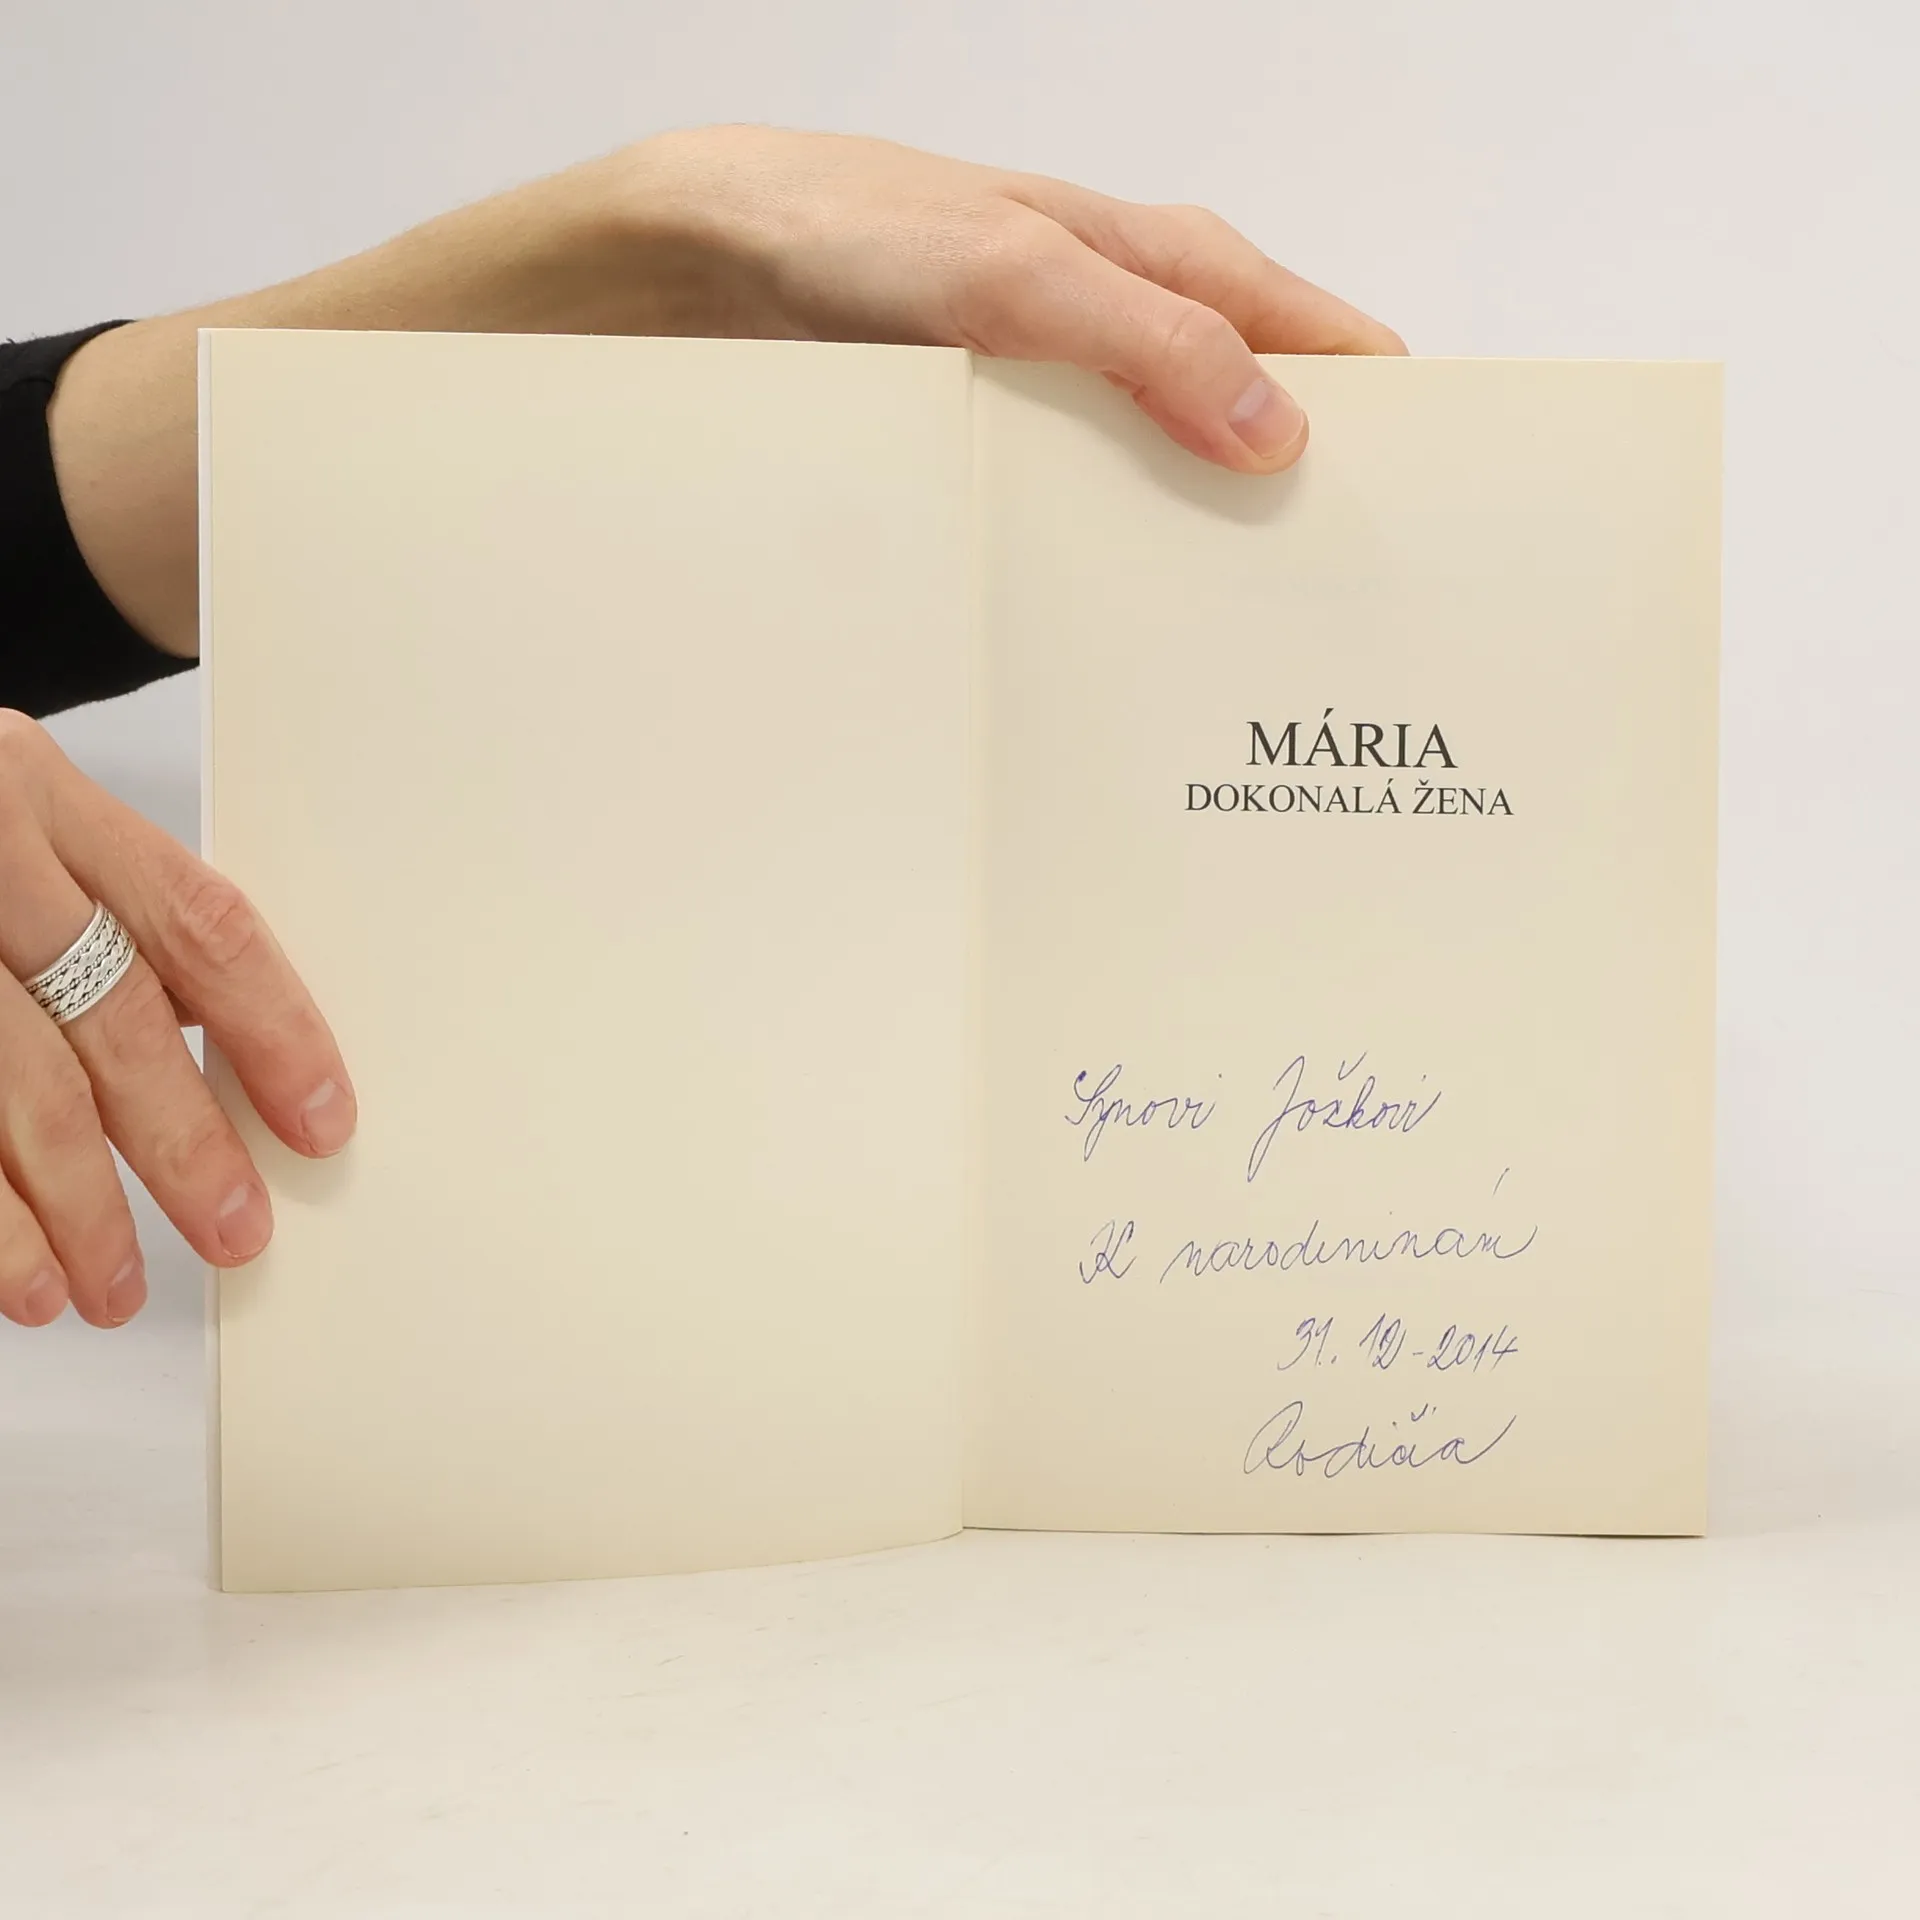 MÁRIA
DOKONALÁ ŽENA
Synovi Jožkovi
K narodeninám
31. 12-2014
Rodičia